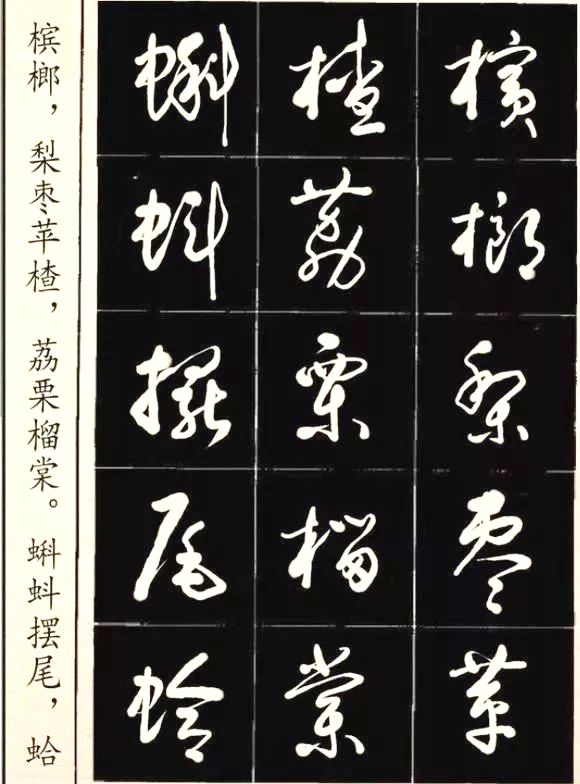 槟榔梨枣苹
楂荔栗榴棠
蝌蚪摆尾蛤
槟榔，梨枣苹楂，荔栗榴棠。蝌蚪摆尾，蛤